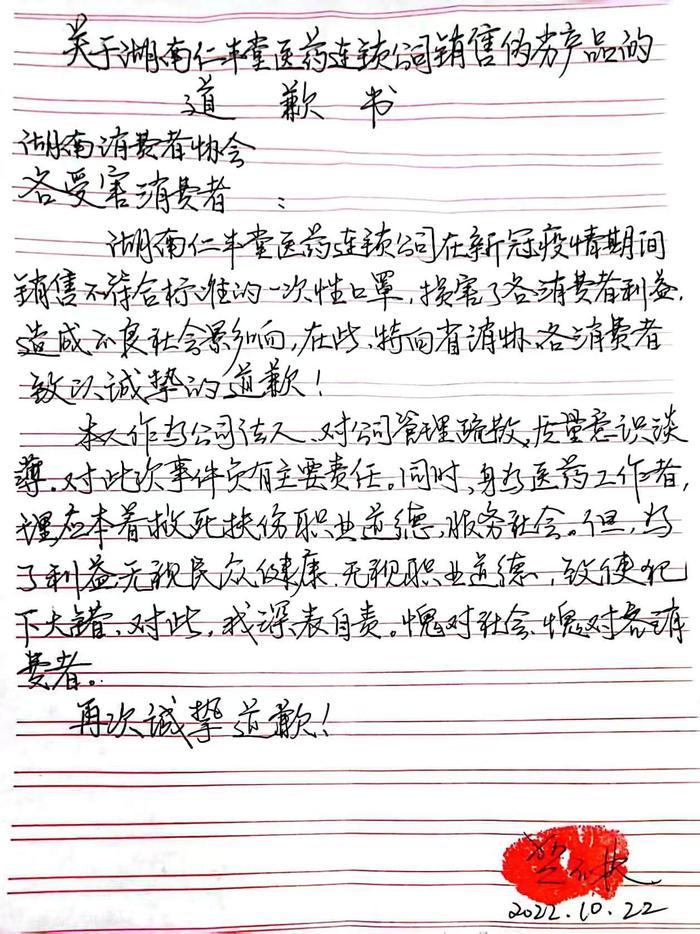 关于湖南仁丰堂医药连锁公司销售伪劣产品的
道歉书
湖南消费者协会
各受害消费者：
湖南仁丰堂医药连锁公司在新冠疫情期间
销售不符合标准的一次性口罩，损害了各消费者利益，
造成不良社会影响，在此、特向省消协、各消费者
致以诚挚的道歉！
本人作为公司法人、对公司管理疏散、质量意识淡
薄。对此次事件负有主要责任。同时、身为医药工作者，
理应本着救死扶伤职业道德，服务社会。但，为
了利益无视民众健康、无视职业道德，致使犯
下大错、对此，我深表自责。愧对社会、愧对各消
费者。
再次诚挚道歉！
2022.10.22